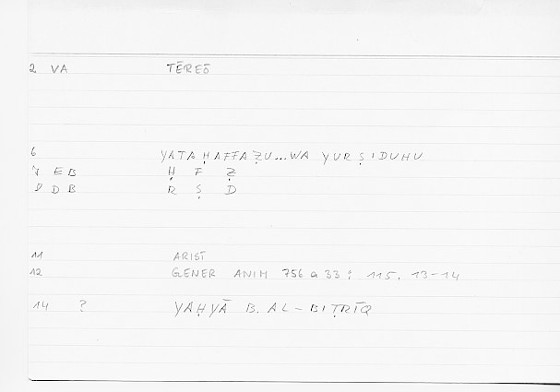 2 VA TĒREŌ
6 YATAḤAFFAẒU...WA YURṢIDUHU
7 EB Ḥ F Ẓ
8 DB R Ṣ D
11 ARIST
12 GENER ANIM 756 a 33; 115, 13-14
14 ? YAḤYĀ B. AL-BIṬRĪQ